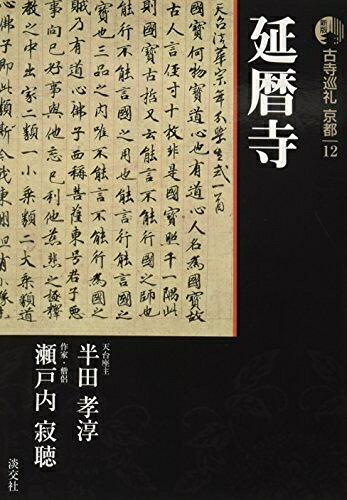 新版
古寺巡礼 京都 12
延暦寺
天台法華宗年分學生式一首
國寶何物寶道心也有道心人名為國寶故
古人言徑寸十枚非是國寶照千一隅此則
國寶古哲又云能言不能行國之師也
能行不能言國之用也能行能言國之
寶也三品之内唯不能言不能行為國之
賊乃有道心佛子西稱菩薩東号君子悪
事向己好事與他忘己利他慈悲之極釋
教之中出家二類一小乗類二大乗類道
心佛子即此斯類今我東州但有小像
天台座主
半田 孝淳
作家・僧侶
瀬戸内 寂聴
淡交社